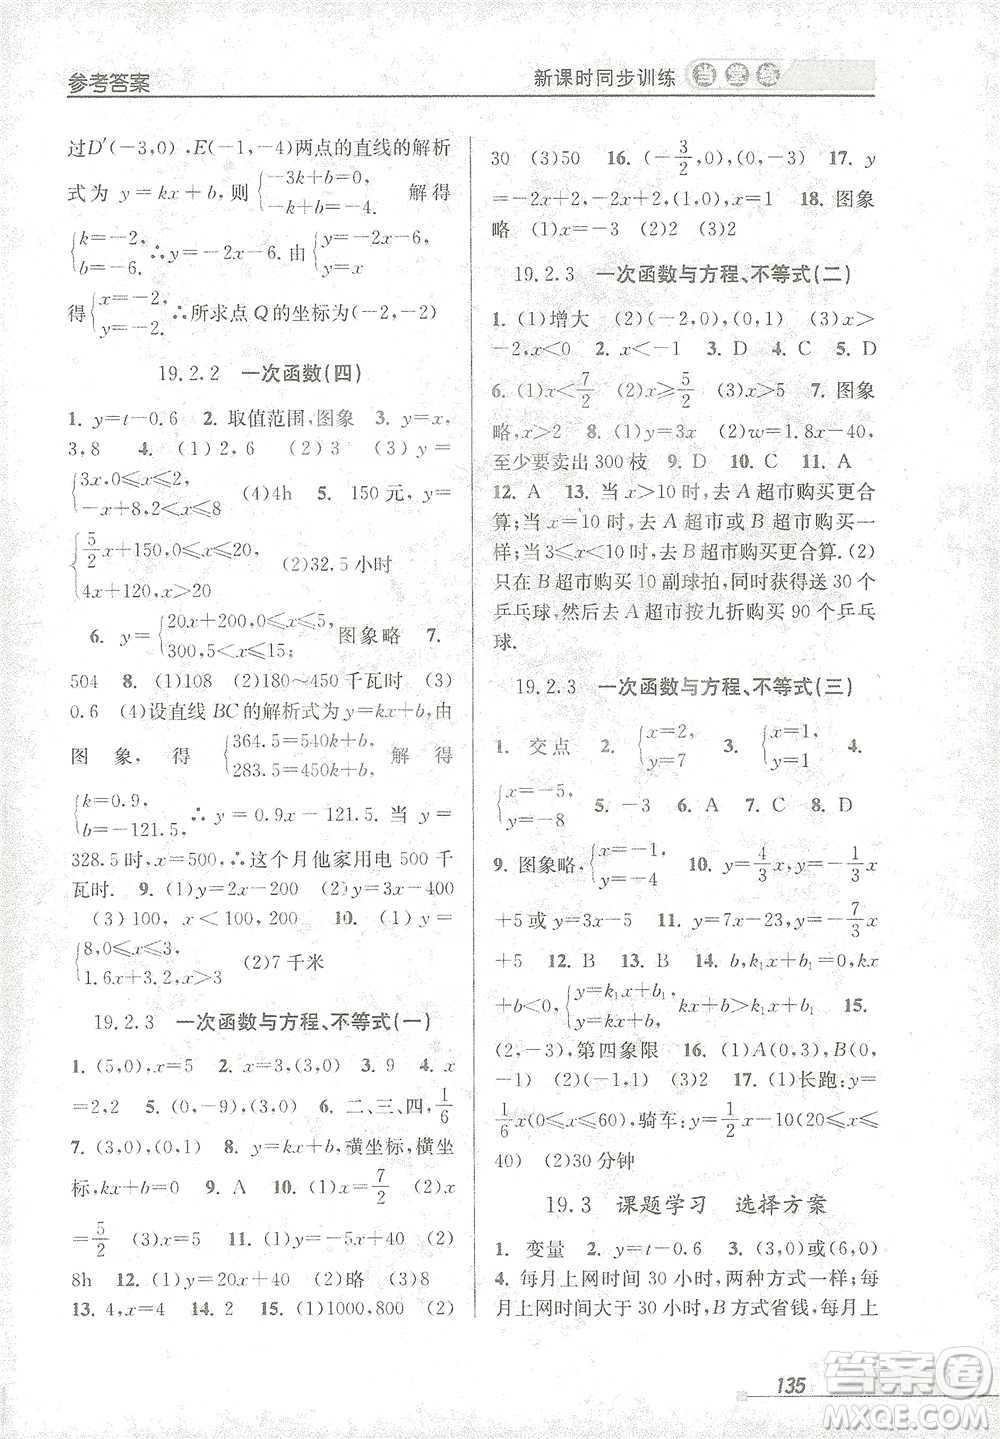 参考答案
新课时同步训练 当堂练
过D′(－3,0),E(－1,－4)两点的直线的解析
式为 y=kx+b,则{－3k+b=0, －k+b=－4. 解得
{k=－2, b=－6. ∴y=－2x－6. 由{y=x, y=－2x－6.
得{x=－2, y=－2. ∴所求点Q的坐标为(－2,－2)
19.2.2 一次函数(四)
1. y=t－0.6 2. 取值范围,图象 3. y=x,
3,8 4. (1)2,6 (2)3 (3)y=
{3x,0≤x≤2, －x+8,2<x≤8 (4)4h 5. 150元,y=
{5/2x+150,0≤x≤20, 4x+120,x>20 (2)32.5小时
6. y={20x+200,0≤x≤5, 300,5<x≤15; 图象略 7.
504 8. (1)108 (2)180～450千瓦时 (3)
0.6 (4)设直线BC的解析式为y=kx+b,由
图象,得{364.5=540k+b, 283.5=450k+b. 解得
{k=0.9, b=－121.5. ∴y=0.9x－121.5. 当y=
328.5时,x=500,∴这个月他家用电500千
瓦时. 9. (1)y=2x－200 (2)y=3x－400
(3)100,x<100,200 10. (1)y=
{8,0≤x≤3, 1.6x+3.2,x>3 (2)7千米
19.2.3 一次函数与方程、不等式(一)
1. (5,0),x=5 2. x=3,(3,0) 3. 9 4. x
=2,2 5. (0,－9),(3,0) 6. 二、三、四,1/6
7. (3,0),(0,1) 8. y=kx+b,横坐标,横坐
标,kx+b=0 9. A 10. (1)x=7/2 (2)x
=5/2 (3)x=5 11. (1)y=－5x+40 (2)
8h 12. (1)y=－2x+2 (2)略 (3)8
13. 4,x=4 14. 2 15. (1)1000,800 (2)
30 (3)50 16. (－3/2,0),(0,－3) 17. y
=－2x+2,－2x+2,(1,0),x=1 18. 图象
略 (1)x=－3 (2)2 (3)2
19.2.3 一次函数与方程、不等式(二)
1. (1)增大 (2)(－2,0),(0,1) (3)x>
－2,x<0 2. x<－1 3. D 4. C 5. D
6. (1)x<7/2 (2)x≥5/2 (3)x>5 7. 图象
略,x>2 8. (1)y=3x (2)w=1.8x－40,
至少要卖出300枝 9. D 10. C 11. A
12. A 13. 当x>10时,去A超市购买更合
算;当x=10时,去A超市或B超市购买一
样;当3≤x<10时,去B超市购买更合算.(2)
只在B超市购买10副球拍,同时获得送30个
乒乓球,然后去A超市按九折购买90个乒乓
球.
19.2.3 一次函数与方程、不等式(三)
1. 交点 2. {x=2, y=7 3. {x=1, y=2 4.
{x=－5, y=－8 5. －3 6. A 7. C 8. D
9. 图象略,{x=－1, y=－4 10. y=4/3x,y=－1/3x
+5或y=3x－5 11. y=7x－23,y=－7/3x
+5 12. B 13. B 14. b,k₁x+b₁=0,kx
+b<0,{y=k₁x+b₁ y=kx+b,k₁x+b₁>kx+b 15.
(2,－3),第四象限 16. (1)A(0,3),B(0,
－1) (2)C(－1,1) (3)2 17. (1)长跑:y=
1/6x(0≤x≤60),骑车:y=1/2x－10(20≤x≤
40) (2)30分钟
19.3 课题学习 选择方案
1. 变量 2. y=t－0.6 3. (3,0)或(6,0)
4. 每月上网时间30小时,两种方式一样;每
月上网时间大于30小时,B方式省钱,每月上
135
答案卷
MXQE.COM